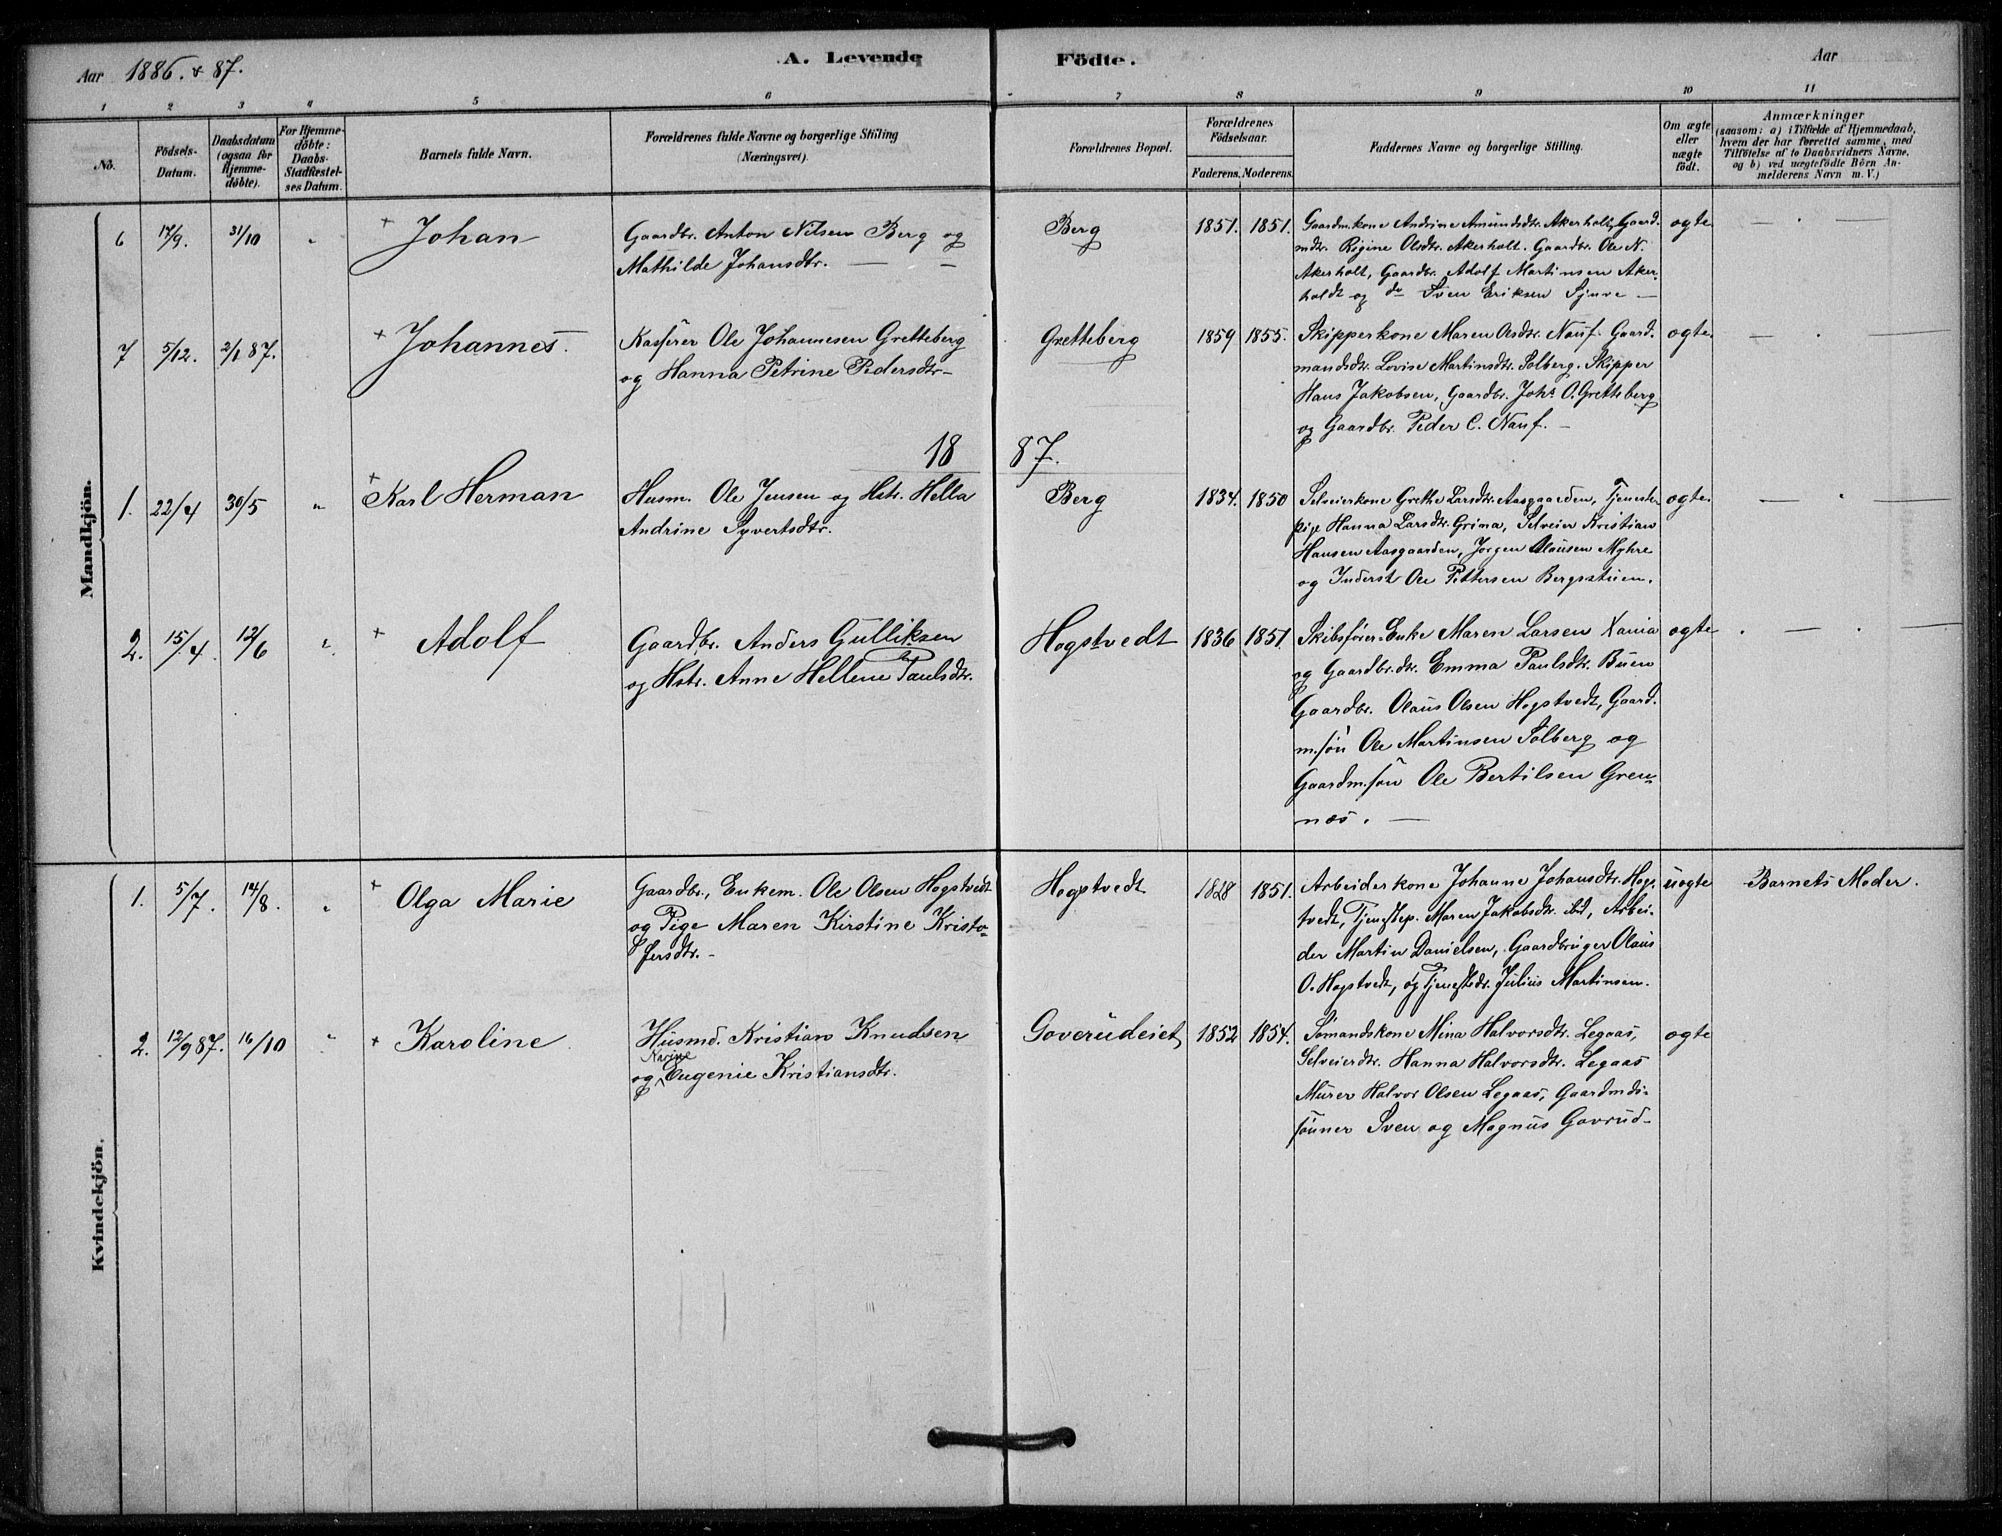 Aar 1886. & 87.
A. Levende Födte.
Aar
1 2 3 4 5 6 7 8 9 10 11
Nô.
Födsels-Datum.
Daabsdatum (ogsaa for Hjemmedöbte).
For Hjemmedöbte: Daabs-Stadfæstelses Datum.
Barnets fulde Navn.
Forældrenes fulde Navne og borgerlige Stilling (Næringsvei).
Forældrenes Bopæl.
Forældrenes Födselsaar.
Faderens. Moderens.
Faddernes Navne og borgerlige Stilling.
Om ægte eller uægte født.
Anmærkninger
(saasom: a) i Tilfælde af Hjemmedaab, hvem der har forrettet samme, med Tilföielse af to Daabsvidners Navne, og b) ved uægtefödte Börn Anmelderens Navn m. V.)
Mandkjön.
6 17/9. 31/10 „ + Johan
Gaardbr. Anton Nilsen Berg og
Mathilde Johansdtr. — —
Berg 1851. 1851.
Gaardm.kone Andrine Amundsdtr. Akerholt, Gaard-
mdtr. Regine Olsdtr. Akerholt. Gaardbr. Ole N.
Akerholt, Gaardbr. Adolf Martinsen Aker-
holdt og do Sven Eriksen Synve —
ægte — . —
7 5/12. 2/1 87. + Johannes.
Kasserer Ole Johannesen Gretteberg
og Hanna Petrine Pedersdtr-
Gretteberg 1859 1855.
Skipperkone Maren Olsdtr. Nauf. Gaard-
mandsdtr. Lovise Martinsdtr. Solberg. Skipper
Hans Jakobsen, Gaardbr. Johs O. Gretteberg
og Gaardbr. Peder C. Nauf. —
ægte. — . —
1887.
1. 22/4 30/5 „ + Karl Herman
Husm. Ole Jensen og Hstr. Hella
Andrine Syvertsdtr.
Berg 1834. 1850
Selveierkone Grethe Larsdtr. Aasgaarden, Tjeneste-
pige Hanna Larsdtr. Grina, Selveier Kristian
Hansen Aasgaarden, Jørgen Olausen Myhre
og Inderst Ole Pettersen Bergsstuen.
ægte. — . —
2. 15/4. 12/6 „ + Adolf
Gaardbr. Anders Gulliksen
og Hstr. Anne Hellene Paulsdtr.
Hogstvedt 1836 1851.
Skibsfører-Enke Maren Larsen Xania
og Gaardbr.dtr. Emma Paulsdtr. Buen
Gaardbr. Olaus Olsen Hogstvedt, Gaard-
m.søn Ole Martinsen Solberg og
Gaardm.søn Ole Bertilsen Gren-
næs. —
ægte . — . —
Kvindekjön.
1. 5/7. 14/8. „ + Olga Marie
Gaardbr., Enkem. Ole Olsen Hogstvedt
og Pige Maren Kirstine Kristo-
fersdtr.-
Hogstvedt 1828 1851.
Arbeiderkone Johanne Johansdtr. Hogs-
tvedt, Tjenestep. Maren Jakobsdtr. ibid, Arbei-
der Martin Danielsen, Gaardbruger Olaus
O. Hogstvedt, og Tjenestdr. Julius Martinsen.
uægte
Barnets Moder.
2. 12/9 87. 16/10 „ + Karoline
Husmd. Kristian Knudsen
Karine
og Eugenie Kristiansdtr.
Goverudeiet 1852 1854.
Sømandskone Mina Halvorsdtr. Legaas,
Selveierdtr. Hanna Halvorsdtr. Legaas
Murer Halvor Olsen Legaas, Gaardmds-
sønner Sven og Magnus Gavrud-
ægte